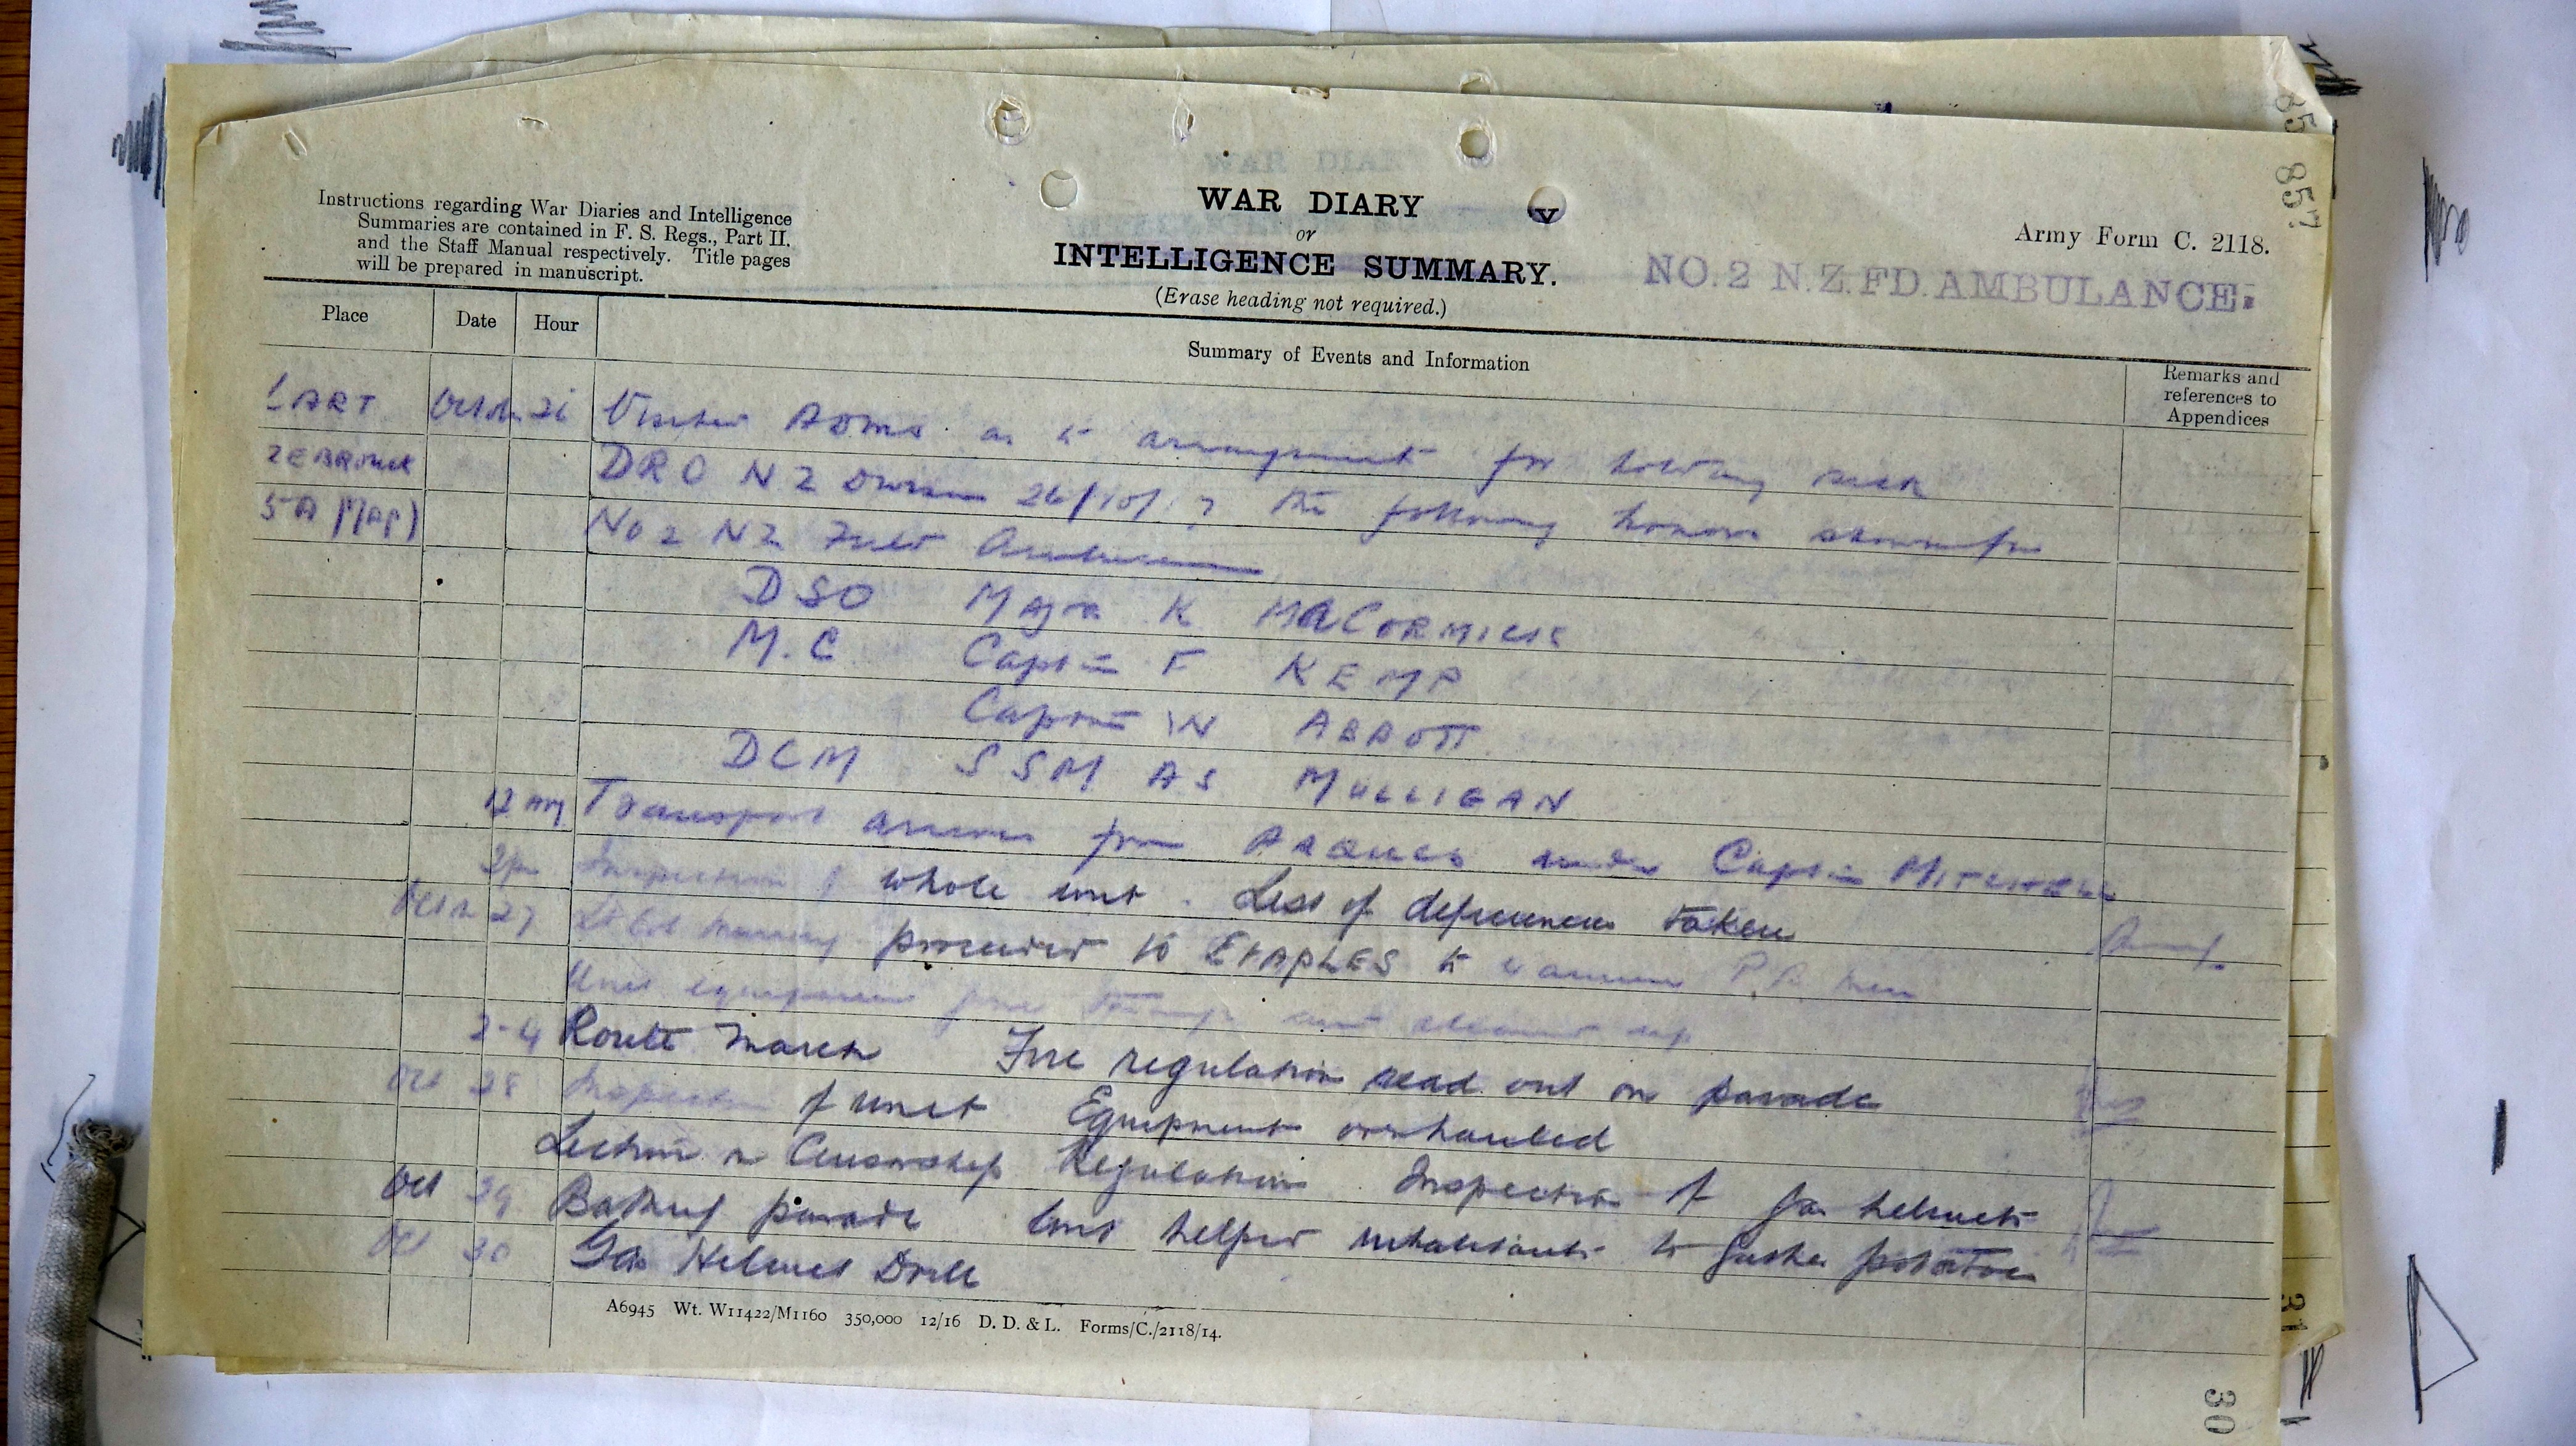 Instructions regarding War Diaries and Intelligence
Summaries are contained in F. S. Regs., Part II.
and the Staff Manual respectively. Title pages
will be prepared in manuscript.
WAR DIARY
or
INTELLIGENCE SUMMARY.
(Erase heading not required.)
Army Form C. 2118.
NO. 2 N.Z. FD. AMBULANCE.
857
Place Date Hour Summary of Events and Information Remarks and
references to
Appendices
1 ART 26 Visited ADMS as to arrangement for holding sick
DRO NZ Division 26/10/17 the following honours
5A (Map) No 2 NZ Field Ambulance
DSO Major K MacCORMICK
M.C Captain F KEMP
Captain W ABBOTT
DCM SSM AS MULLIGAN
12 Transport arrives from under Captain MITCHELL
2pm Inspection of whole unit. List of deficiencies taken
27 Lt Col proceeded to ETAPLES to P.B. men
Unit equipment and cleaned up
2-4 Route march Fire regulations read out on parade
Oct 28 Inspection of unit Equipment overhauled
Lecture on Censorship Regulations. Inspection of gas helmets
Oct 29 Bathing parade Unit helped inhabitants to gather potatoes
Oct 30 Gas Helmet Drill
A6945 Wt. W11422/M1160 350,000 12/16 D. D. & L. Forms/C./2118/14.
31
30